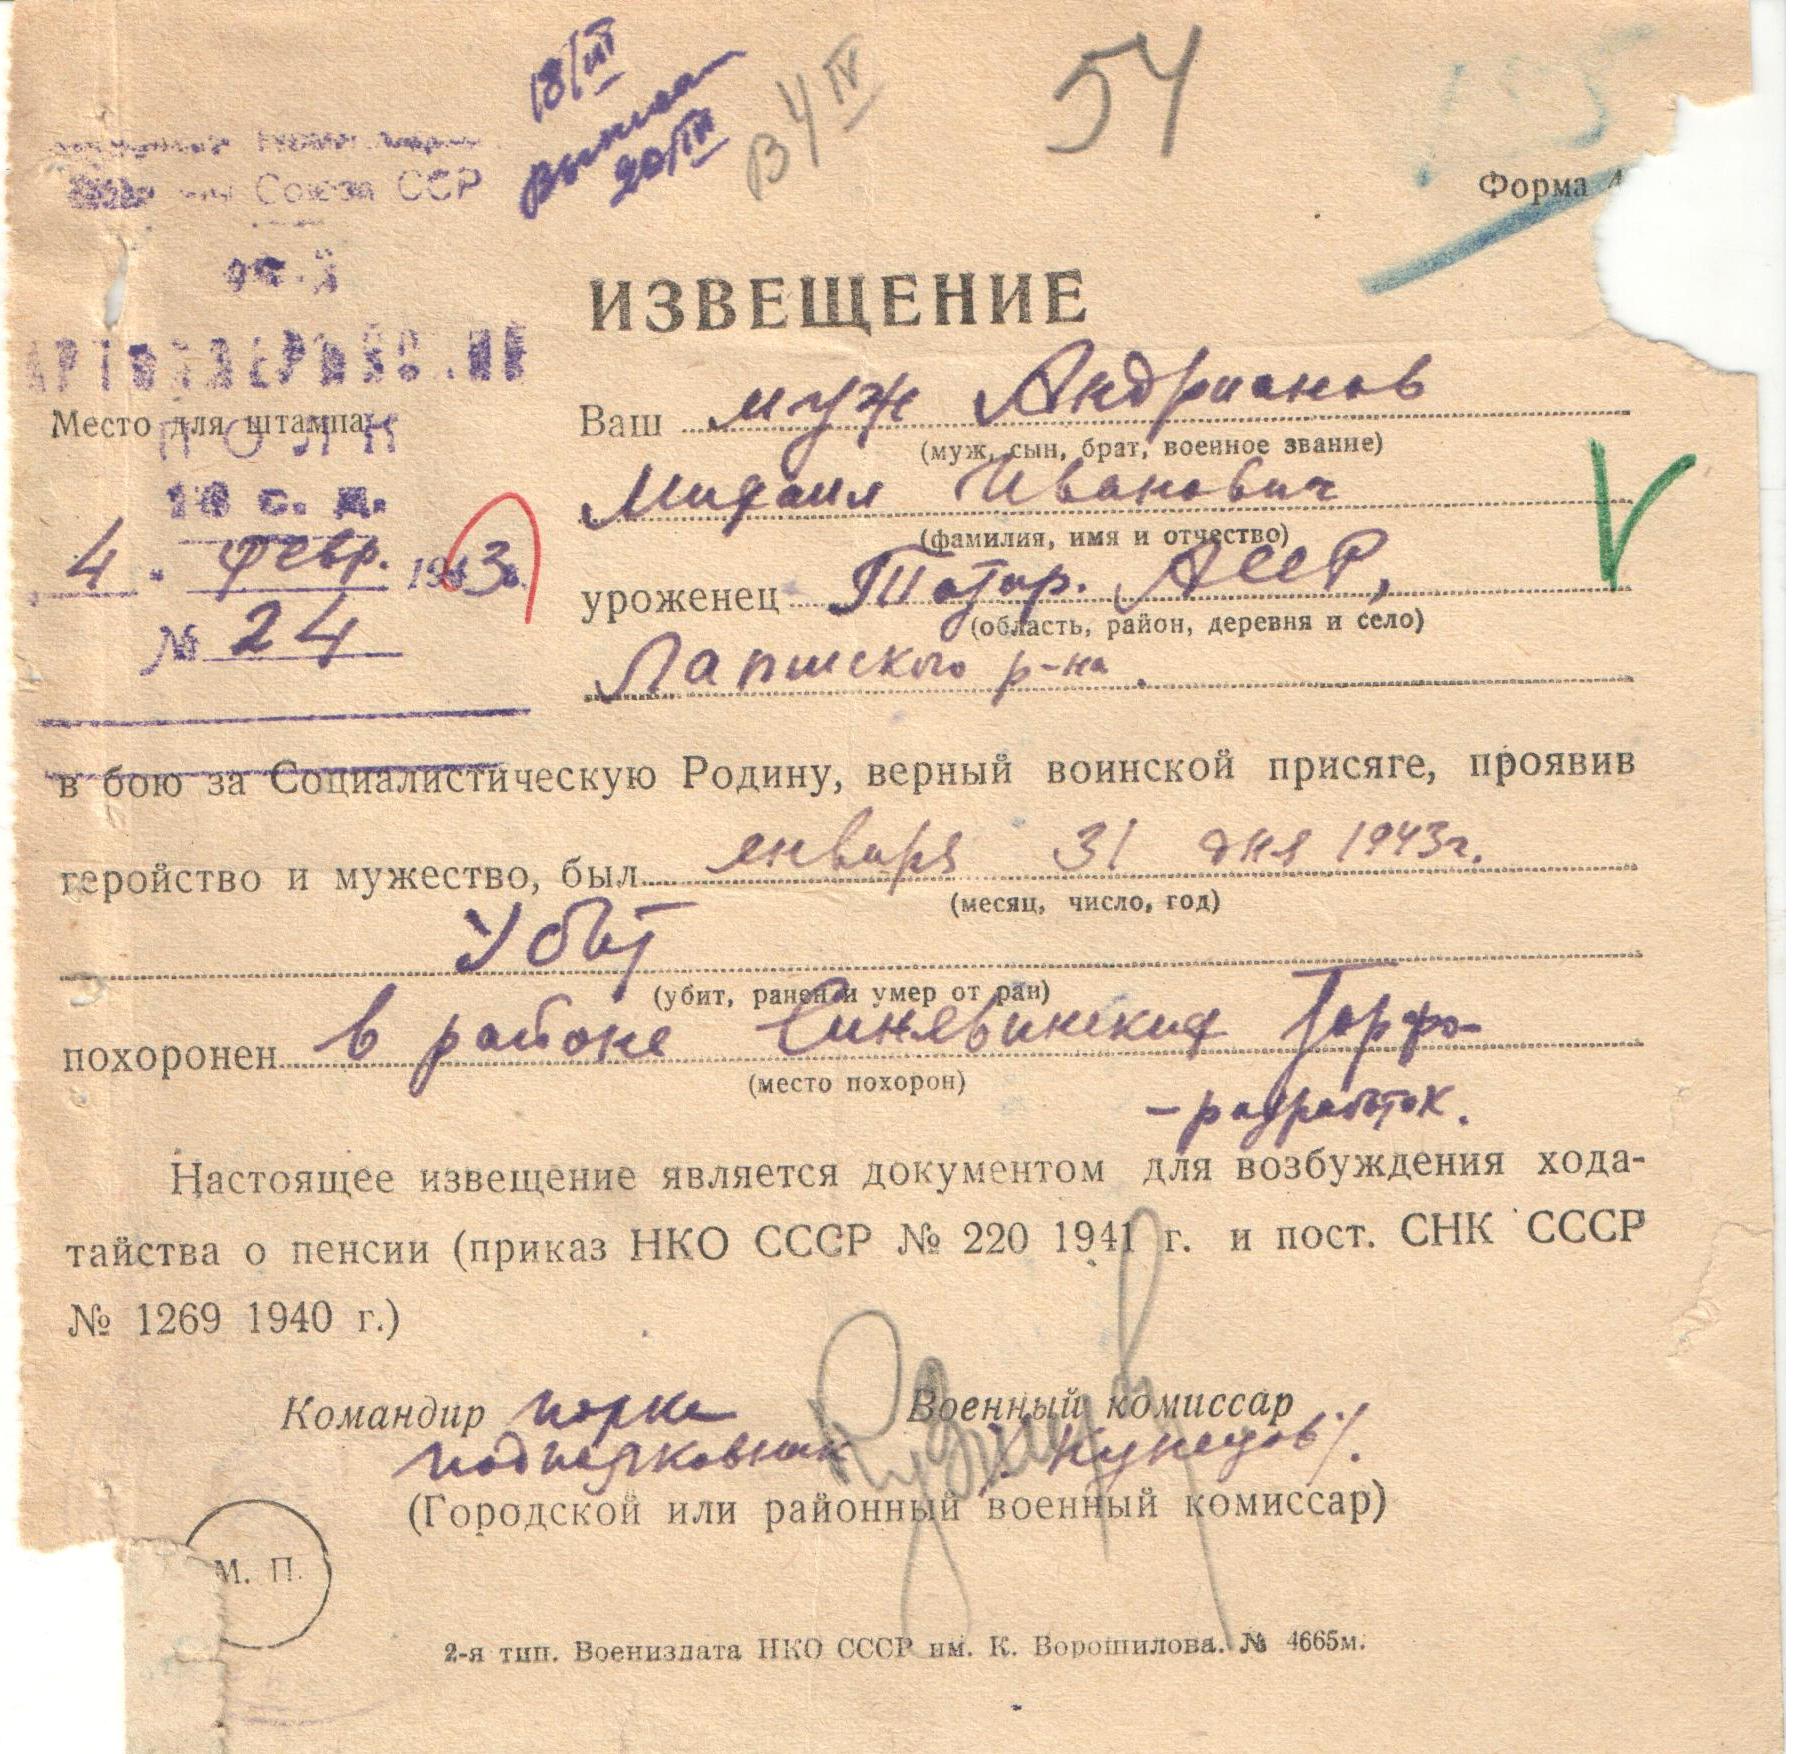 18/III
20/III
В 4 IV
54
Союза ССР
Форма 4
ИЗВЕЩЕНИЕ
АРТИЛЛЕРИЙСКИЙ
Место для штампа
ПОЛК
10 с. д.
4 . февр. 1943г.
№ 24
Ваш муж Андрианов
(муж, сын, брат, военное звание)
Михаил Иванович
(фамилия, имя и отчество)
уроженец Татар. АССР,
(область, район, деревня и село)
р-на.
в бою за Социалистическую Родину, верный воинской присяге, проявив
геройство и мужество, был января 31 дня 1943г.
(месяц, число, год)
Убит
(убит, ранен и умер от ран)
похоронен в районе Синявинских Торфо-
(место похорон)
-разработок.
Настоящее извещение является документом для возбуждения хода-
тайства о пенсии (приказ НКО СССР № 220 1941 г. и пост. СНК СССР
№ 1269 1940 г.)
Командир полка Военный комиссар
подполковник /Кунецов/.
(Городской или районный военный комиссар)
М. П.
2-я тип. Воениздата НКО СССР им. К. Ворошилова. № 4665м.